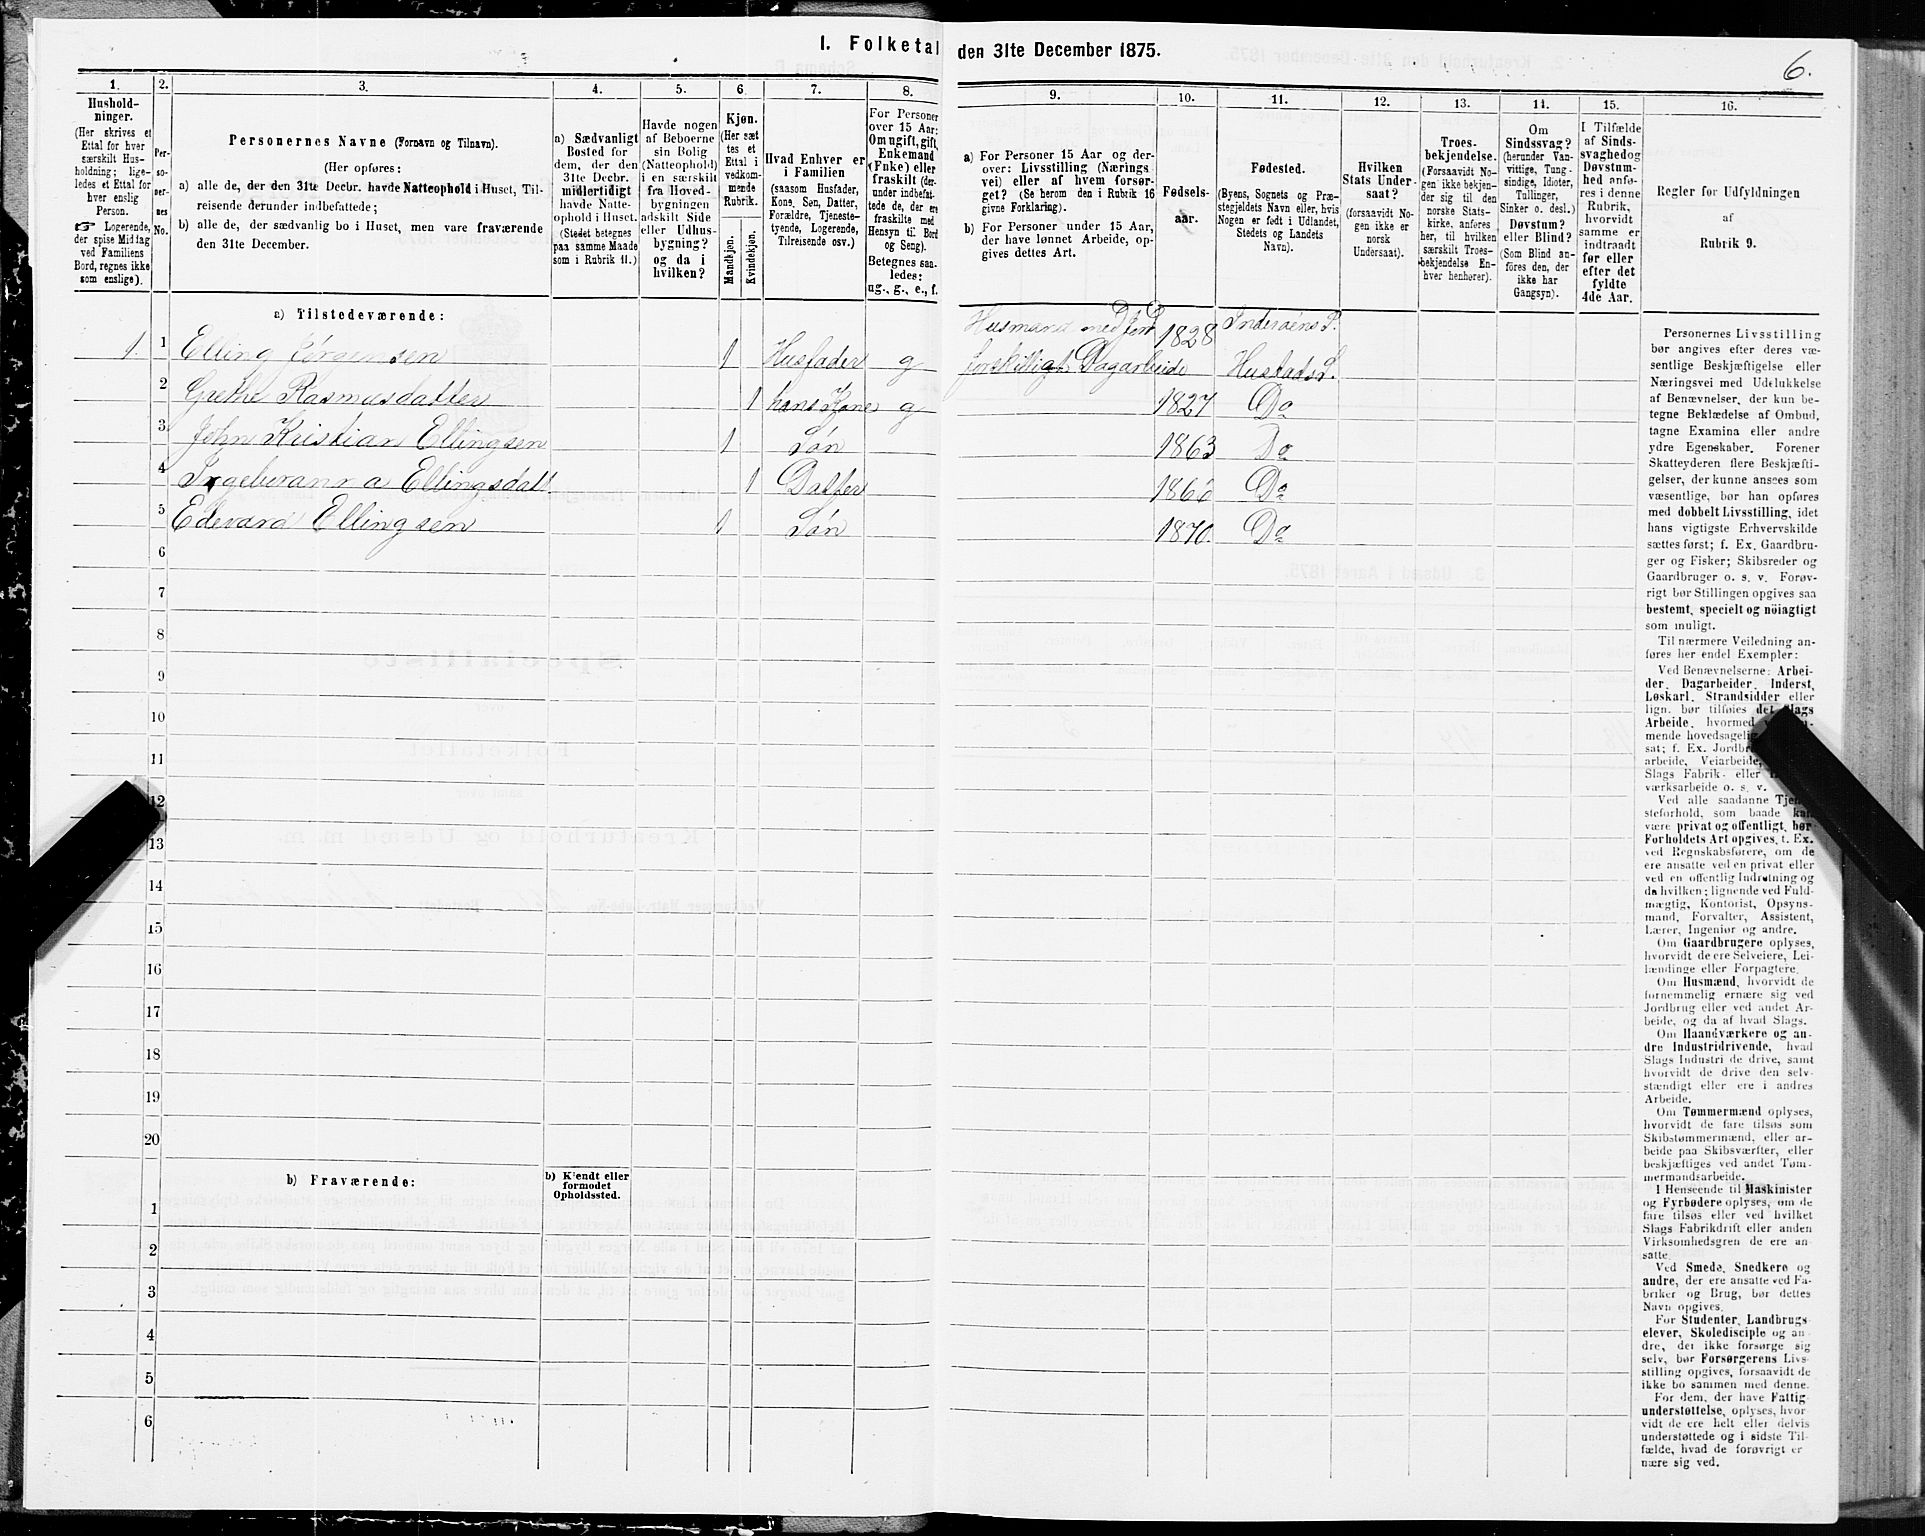 I. Folketal den 31te December 1875.
6.
1. 2. 3. 4. 5. 6. 7. 8. 9. 10. 11. 12. 13. 14. 15. 16.
Hushold-
ninger.
(Her skrives et
Ettal for hver
særskilt Hus-
holdning; lige-
ledes et Ettal for
hver enslig
Person.
☞ Logerende,
der spise Middag
ved Familiens
Bord, regnes ikke
som enslige).
Per-
so-
ner-
nes
No.
Personernes Navne (Fornavn og Tilnavn).
(Her opføres:
a) alle de, der den 31te Decbr. havde Natteophold i Huset, Til-
reisende derunder indbefattede;
b) alle de, der sædvanlig bo i Huset, men vare fraværende
den 31te December.
a) Sædvanligt
Bosted for
dem, der den
31te Decbr.
midlertidigt
havde Natte-
ophold i Huset.
(Stedet betegnes
paa samme Maade
som i Rubrik 11.)
Havde nogen
af Beboerne
sin Bolig
(Natteophold)
i en særskilt
fra Hoved-
bygningen
adskilt Side
eller Udhus-
bygning?
og da i
hvilken?
Kjøn.
(Her sæt
tes et
Ettal i
vedkom-
mende
Rubrik.
Mandkjøn.
Kvindekjøn.
Hvad Enhver er
i Familien
(saasom Husfader,
Kone, Søn, Datter,
Forældre, Tjeneste-
tyende, Logerende,
Tilreisende osv.)
For Personer
over 15 Aar:
Om ugift, gift,
Enkemand
(Enke) eller
fraskilt (der-
under indbefat-
tede de, der ere
fraskilte med
Hensyn til Bord
og Seng).
Betegnes saa-
ledes:
ug., g., e., f.
a) For Personer 15 Aar og der-
over: Livsstilling (Nærings
vei) eller af hvem forsør-
get? (Se herom den i Rubrik 16
givne Forklaring).
b) For Personer under 15 Aar,
der have lønnet Arbeide, op-
gives dettes Art.
Fødsels-
aar.
Fødested.
(Byens, Sognets og Præ-
stegjeldets Navn eller, hvis
Nogen er født i Udlandet,
Stedets og Landets
Navn).
Hvilken
Stats Under-
saat?
(forsaavidt No-
gen ikke er
norsk
Undersaat).
Troes-
bekjendelse.
(Forsaavidt No-
gen ikke bekjen-
der sig til den
norske Stats-
kirke, anføres
her, til hvilken
særskilt Troes-
bekjendelse En-
hver henhører).
Om
Sindssvag?
(herunder Van-
vittige, Tung-
sindige, Idioter,
Tullinger,
Sinker o. desl.)
Døvstum?
eller Blind?
(Som Blind an-
føres den, der
ikke har
Gangsyn).
I Tilfælde
af Sinds-
svaghed og
Døvstum-
hed anfø-
res i denne
Rubrik,
hvorvidt
samme er
indtraadt
før eller
efter det
fyldte
4de Aar.
Regler for Udfyldningen
af
Rubrik 9.
a) Tilstedeværende:
1. 1 Elling Jørgensen 1 Husfader g Husmand med Jord 1828 Inderøens P.
forskilligt Dagarbeide Hustads S.
2 Grethe Rasmusdatter 1 hans Kone g 1827 Do
3 John Kristian Ellingsen 1 Søn 1863 Do
4 Ellingsdatt 1 Datter 1866 Do
5 Edevard Ellingsen 1 Søn 1870. Do
6
7
8
9
10
11
12
13
14
15
16
17
18
19
20
b) Fraværende:
b) Kjendt eller
formodet
Opholdssted.
1
2
3
4
5
6
Personernes Livsstilling
bør angives efter deres væ-
sentlige Beskjæftigelse eller
Næringsvei med Udelukkelse
af Benævnelser, der kun be-
tegne Beklædelse af Ombud,
tagne Examina eller andre
ydre Egenskaber. Forener
Skatteyderen flere Beskjæfti-
gelser, der kunne ansees som
væsentlige, bør han opføres
med dobbelt Livsstilling, idet
hans vigtigste Erhvervskilde
sættes først; f. Ex. Gaardbru-
ger og Fisker; Skibsreder og
Gaardbruger o. s. v. Forøv-
rigt bør Stillingen opgives saa
bestemt, specielt og nöiagtigt
som muligt.
Til nærmere Veiledning an-
føres her endel Exempler:
Ved Benævnelserne: Arbei-
der, Dagarbeider, Inderst,
Løskarl, Strandsidder eller
lign. bør tilføies det Slags
Arbeide, hvormed
mende hovedsagelig
sat; f. Ex.
arbeide, Veiarbeide,
Slags Fabrik- eller
værksarbeide o. s. v.
Ved alle saadanne
steforhold, som baade
være privat og offentligt, bør
Forholdets Art opgives, t. Ex.
ved Regnskabsførere, om de
ere ansatte ved en privat eller
ved en offentlig Indretning og
da hvilken; lignende ved Fuld-
mægtig, Kontorist, Opsyns-
mand, Forvalter, Assistent,
Lærer, Ingeniør og andre.
Om Gaardbrugere oplyses,
hvorvidt de ere Selveiere, Lei-
lændinge eller Forpagtere.
Om Husmænd, hvorvidt de
fornemmelig ernære sig ved
Jordbrug eller ved andet Ar-
beide, og da af hvad Slags.
Om Haandværkere og an-
dre Industridrivende, hvad
Slags Industri de drive, samt
hvorvidt de drive den selv-
stændigt eller ere i andres
Arbeide.
Om Tømmermænd oplyses,
hvorvidt de fare tilsøs som
Skibstømmermænd, eller ar-
beide paa Skibsværfter, eller
beskjæftiges ved andet Tøm-
mermandsarbeide.
I Henseende til Maskinister
og Fyrbødere oplyses, om de
fare tilsøs eller ved hvilket
Slags Fabrikdrift eller anden
Virksomhedsgren de ere an-
satte.
Ved Smede, Snedkere og
andre, der ere ansatte ved Fa-
briker og Brug, bør dettes
Navn opgives.
For Studenter, Landbrugs-
elever, Skoledisciple og an-
dre, der ikke forsørge sig
selv, bør Forsørgerens Livs-
stilling opgives, forsaavidt de
ikke bo sammen med denne.
For dem, der have Fattig-
understøttelse, oplyses, hvor-
vidt de ere helt eller delvis
understøttede og i sidste Til-
fælde, hvad de forøvrigt er
nære sig ved.